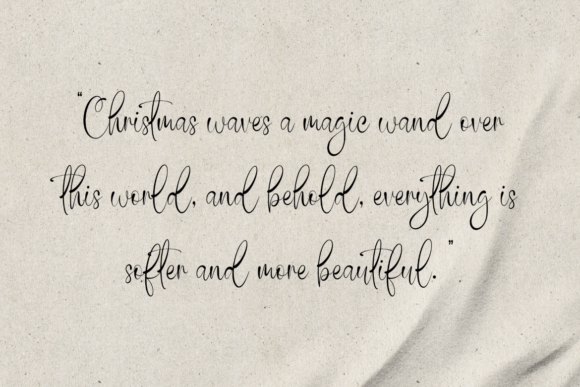 “Christmas waves a magic wand over
this world, and behold, everything is
softer and more beautiful.”